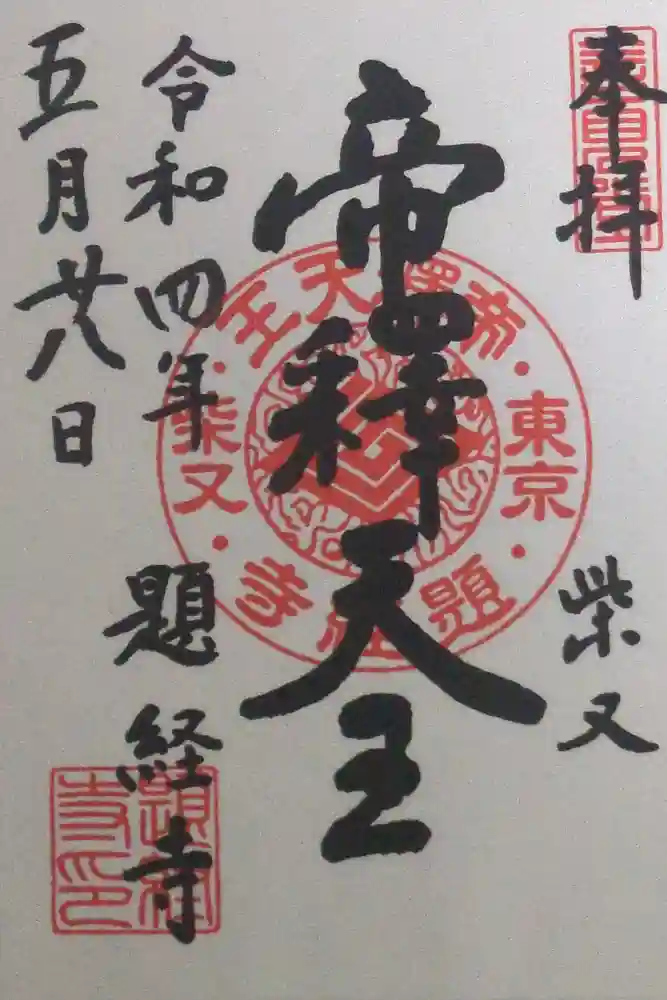 奉拝
柴又
帝釋天王
令和四年
五月廿八日
題経寺
帝釋天王
東京
柴又
題経寺
題経寺印